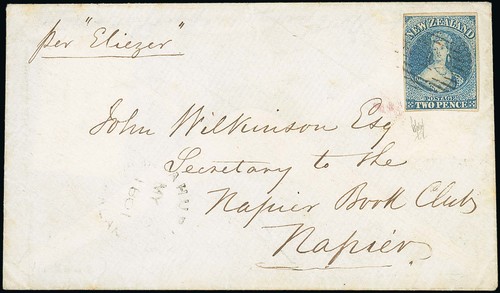 per "Eliezer"
NEW ZEALAND
POSTAGE
TWO PENCE
John Wilkinson Esq
Secretary to the
Napier Book Club
Napier
MY
1861